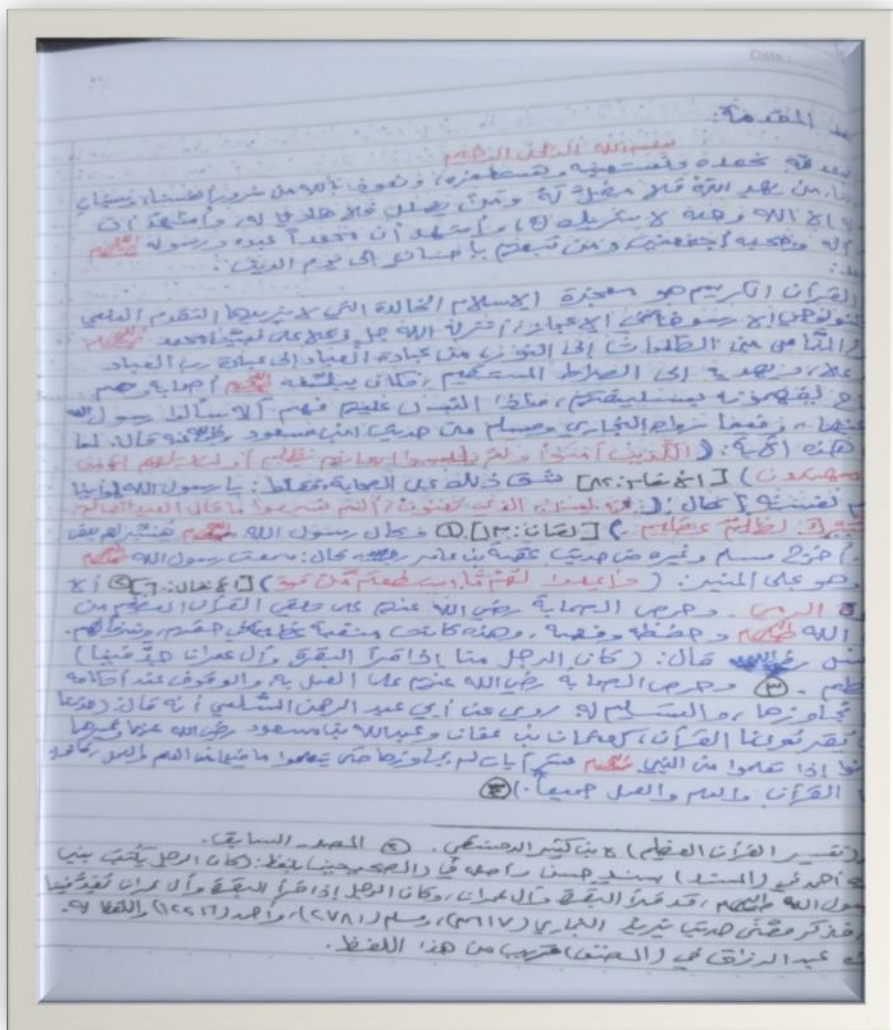 Date:
المقدمة:
بسم الله الرحمن الرحيم
نحمده ونستعينه ونستغفره، ونعوذ بالله من شرور أنفسنا، وسيئات
من يهد الله فلا مضل له ومن يضلل فلا هادي له، وأشهد أن
إلا الله وحده لا شريك له، وأشهد أن محمداً عبده ورسوله ﷺ
آله وصحبه أجمعين ومن تبعهم بإحسان إلى يوم الدين.
القرآن الكريم هو معجزة الإسلام الخالدة التي لا يزيدها التقدم العلمي
إلا رسوخاً في الإعجاز، أنزله الله جل وعلا على نبينا محمد ﷺ
من الظلمات إلى النور، من عبادة العباد إلى عبادة رب العباد
ويهديه إلى الصراط المستقيم، فكان يبلغه ﷺ أصحابه وهم
ليفهمونه بسليقتهم، فإذا التبس عليهم فهم سألوا رسول الله
رواه البخاري ومسلم من حديث ابن مسعود رضي الله عنه قال: لما
هذه الآية: (الذين آمنوا ولم يلبسوا إيمانهم بظلم أولئك لهم الأمن
مهتدون) [الأنعام: ٨٢] شق ذلك على الصحابة فقالوا: يا رسول الله وأينا
نفسه؟ قال: ألم تسمعوا ما قال العبد الصالح
لظلم عظيم) [لقمان: ١٣] ① وكان رسول الله ﷺ يفسر لهم بعض
أخرج مسلم وغيره من حديث عقبة بن عامر قال: سمعت رسول الله ﷺ
وهو على المنبر: (وأعدوا لهم ما استطعتم من قوة) [الأنفال: ٦٠] ② ألا
الرمي. وحرص الصحابة رضي الله عنهم على تلقي القرآن العظيم من
الله ﷺ وحفظه وفهمه، وهذه كانت منقبة
قال: (كان الرجل منا إذا قرأ البقرة وآل عمران جدّ فينا)
③ وحرص الصحابة رضي الله عنهم على العمل به والوقوف عند أحكامه
والتسليم له روي عن أبي عبد الرحمن السلمي أنه قال: (حدثنا
القرآن، كعثمان بن عفان وعبدالله بن مسعود رضي الله عنهما وغيرهما
إذا تعلموا من النبي ﷺ عشر آيات لم يجاوزوها حتى يتعلموا ما فيها من العلم والعمل
القرآن والعلم والعمل جميعاً.) ④
(تفسير القرآن العظيم) لابن كثير الدمشقي. ② المصدر السابق.
أحمد في (المسند) بسند حسن وأصله في الصحيحين بلفظ: (كان الرجل يكتب بين
رسول الله ﷺ، قد قرأ البقرة وآل عمران، وكان الرجل إذا قرأ البقرة وآل عمران يُعَدّ فينا
البخاري (٣٦١٧)، ومسلم (٢٧٨١)، وأحمد (١٢٢١٦) واللفظ له.
عبد الرزاق في (المصنف) قريب من هذا اللفظ.